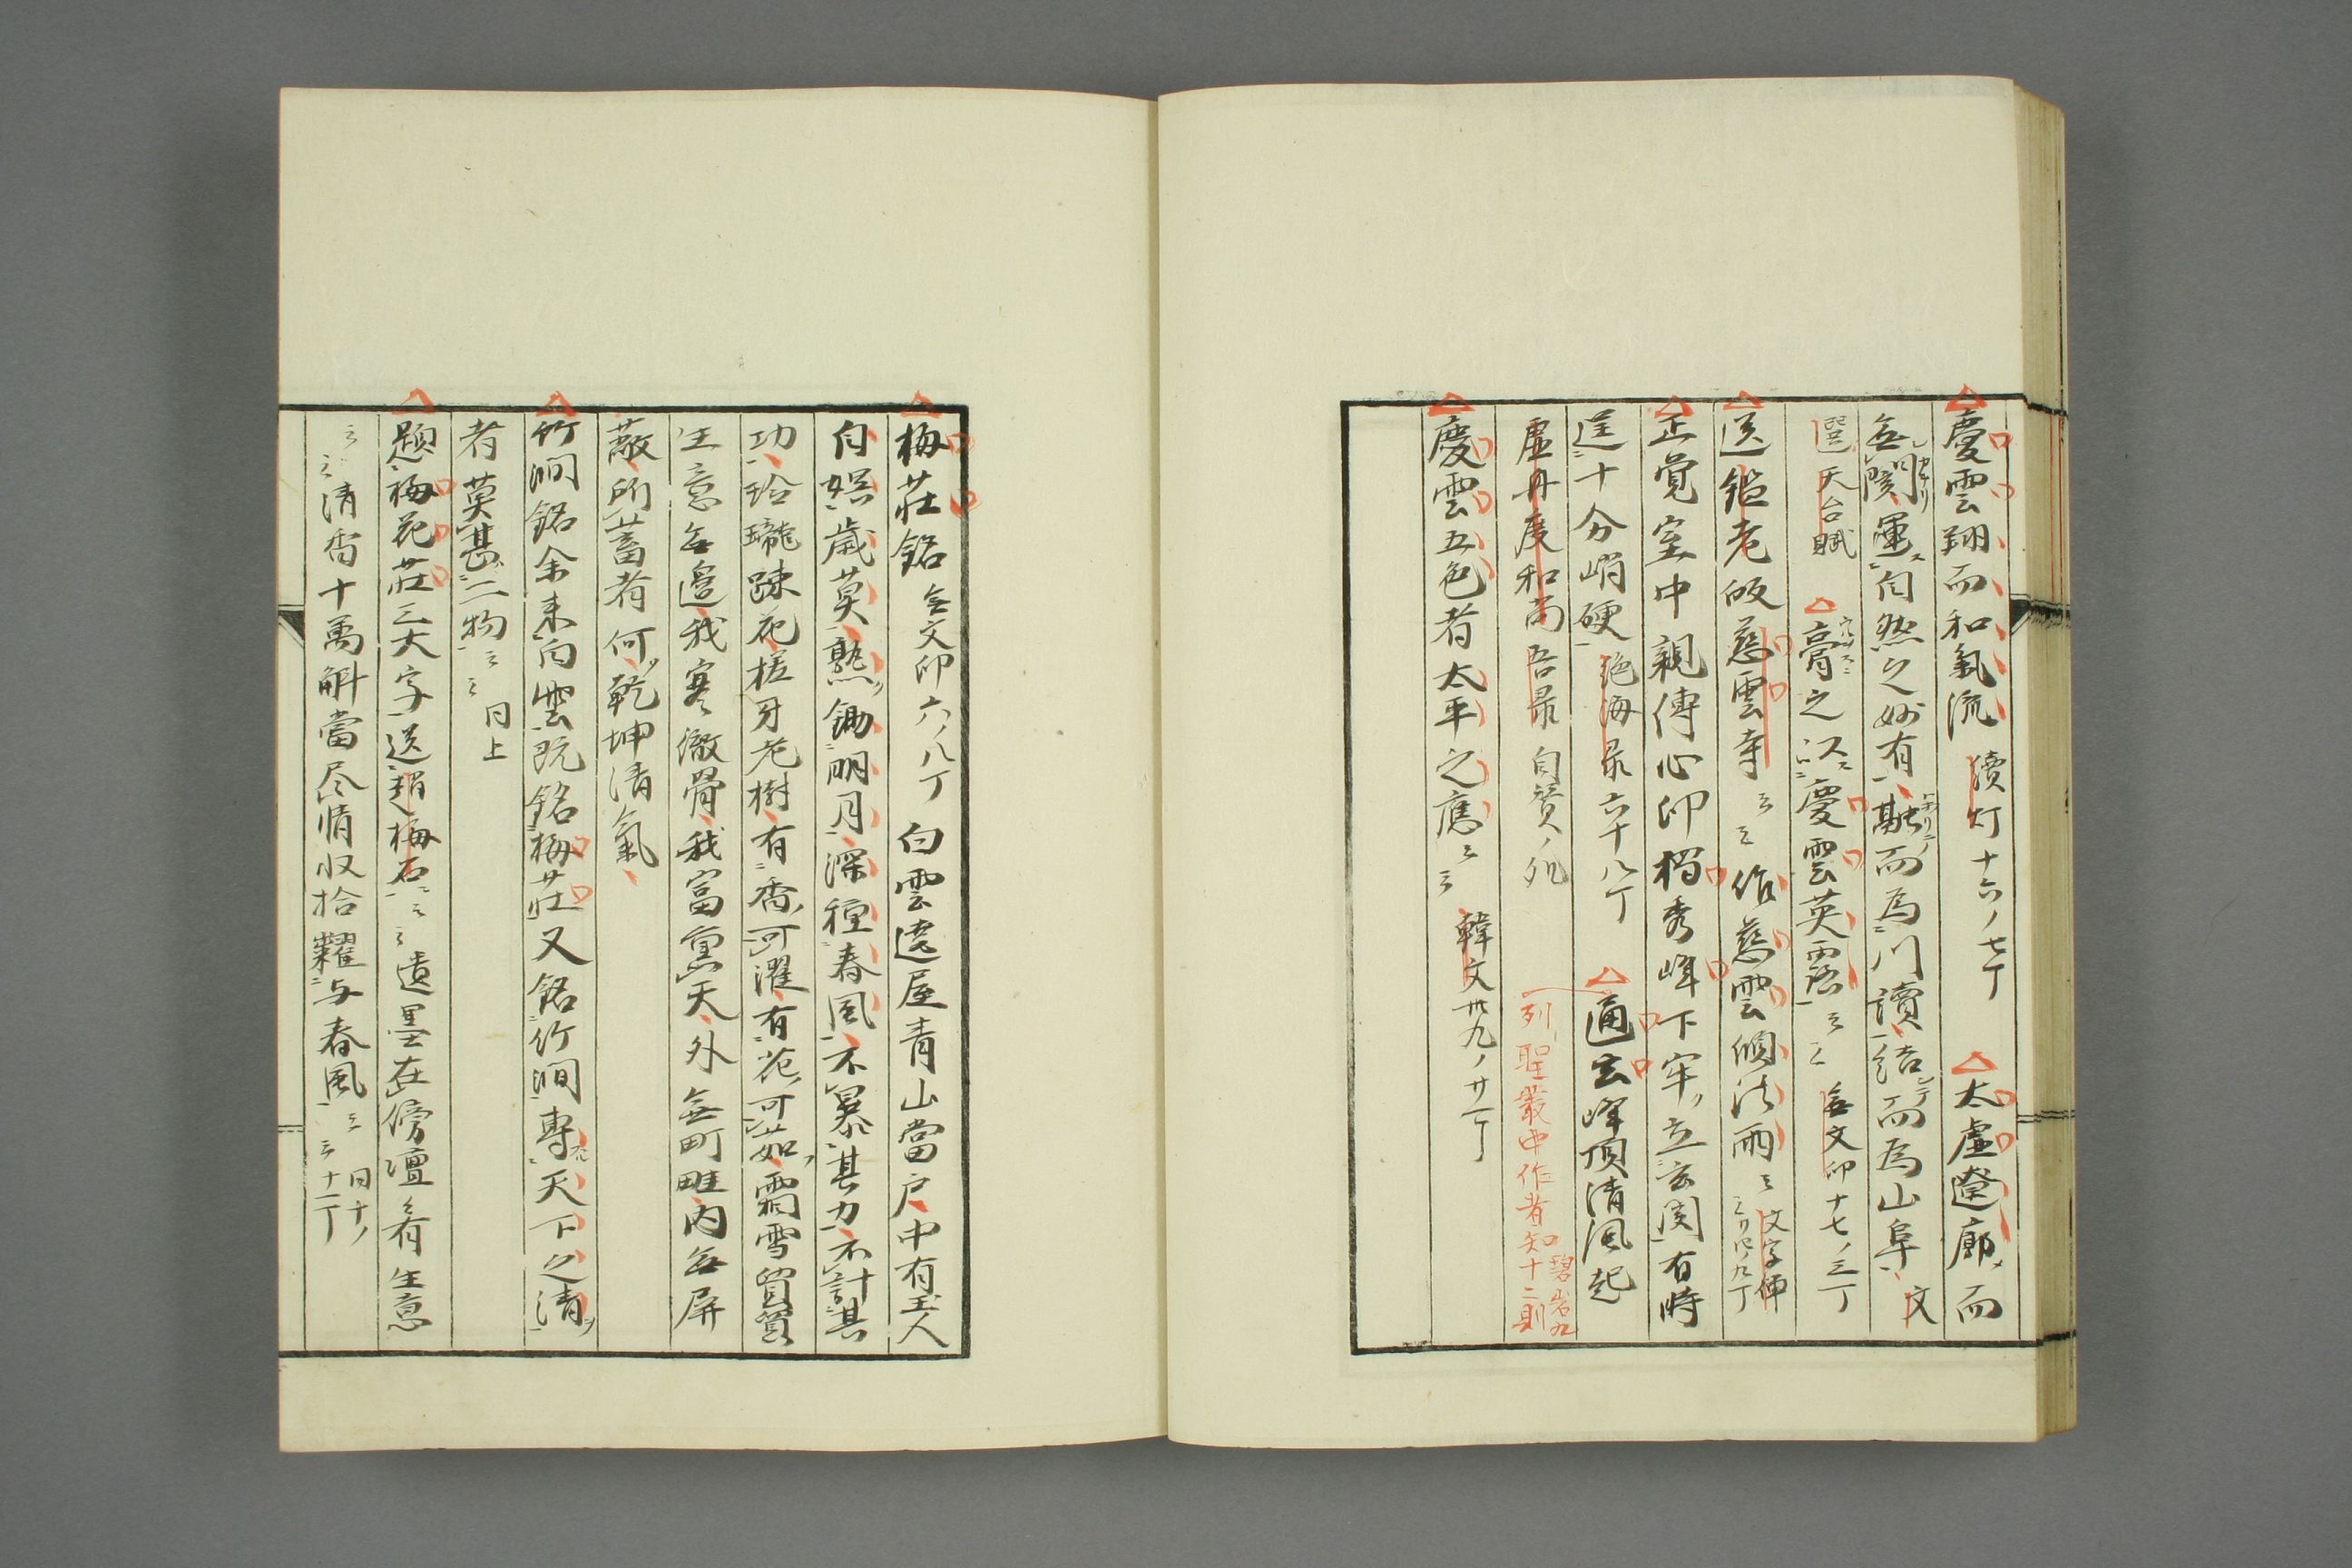 慶雲翔而和氣流 續灯十六ノ七丁 太虛遼廓而
無閡運自然之妙有融而為川讀結而為山阜文
選天台賦 膏之以慶雲英露云云 無文印十七ノ三丁
送鎰老皈慈雲寺云云作慈雲傾法雨云云
正覚室中親傳心印獨秀峰下牢立玄関有時
逞十分峭硬 絶海录六十八丁 通玄峰頂清風起
虛舟度和尚吾录自賛ノ
列聖叢中作者知十二則
碧岩九
慶雲五色者太平之應云云 韓文卅九ノ廿一丁
梅莊銘 無文印六ノ八丁 白雲遶屋青山當戶中有玉人
自娯歳莫熟鋤明月深種春風不暴其力不計其
功玲瓏疎花槎牙老樹有香可濯有花可茹霜雪貿貿
生意無邊我寒徹骨我富薫天外無町畦内無屏
蔽所蓄者何乾坤清氣
竹澗銘余来向雲既銘梅莊又銘竹澗専天下之清
者莫甚二物云云 同上
題梅花莊三大字送趙梅石云云云遺墨在傍壇看生意
云云清香十萬斛當尽情収拾糶与春風云云 同十ノ十一丁